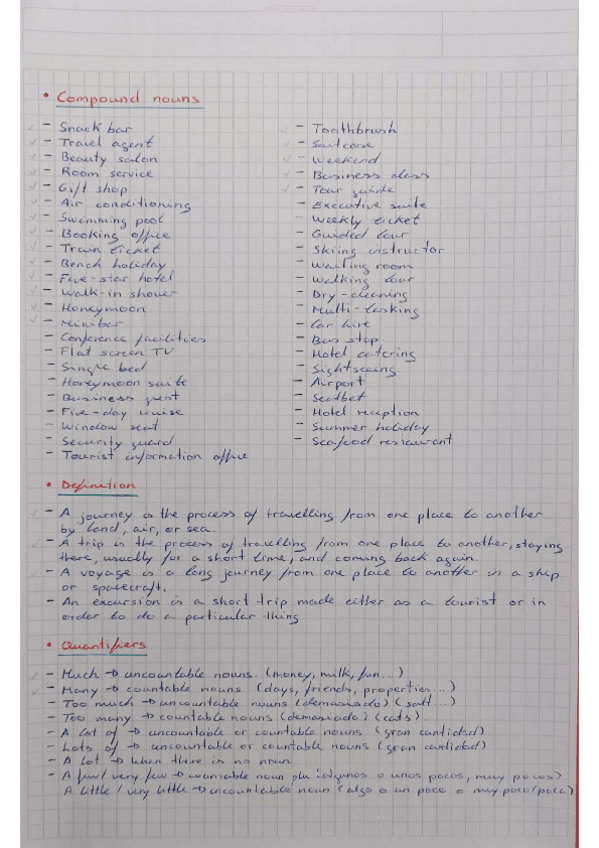 • Compound nouns
- Snack bar
- Travel agent
- Beauty salon
- Room service
- Gift shop
- Air conditioning
- Swimming pool
- Booking office
- Train ticket
- Beach holiday
- Five-star hotel
- Walk-in shower
- Honeymoon
- Minibar
- Conference facilities
- Flat screen TV
- Single bed
- Honeymoon suite
- Business guest
- Five-day cruise
- Window seat
- Security guard
- Tourist information office
- Toothbrush
- Suitcase
- Weekend
- Business class
- Tour guide
- Executive suite
- Weekly ticket
- Guided tour
- Skiing instructor
- Waiting room
- Walking tour
- Dry-cleaning
- Multi-tasking
- Car hire
- Bus stop
- Hotel catering
- Sightseeing
- Airport
- Seatbet
- Hotel reception
- Summer holiday
- Seafood restaurant
• Definition
- A journey is the process of travelling from one place to another
by land, air, or sea.
- A trip is the process of travelling from one place to another, staying
there, usually for a short time, and coming back again.
- A voyage is a long journey from one place to another in a ship
or spacecraft.
- An excursion is a short trip made either as a tourist or in
order to do a particular thing
• Quantifiers
- Much → uncountable nouns. (money, milk, fun...)
- Many → countable nouns (days, friends, properties...)
- Too much → uncountable nouns (demasiado) (salt...)
- Too many → countable nouns (demasiado) (cats).
- A lot of → uncountable or countable nouns (gran cantidad)
- Lots of → uncountable or countable nouns (gran cantidad)
- A lot → when there is no noun
- A few/very few → countable noun plu: (algunos o unos pocos, muy pocos)
A little/very little → uncountable noun (algo o un poco o muy poco/poca)